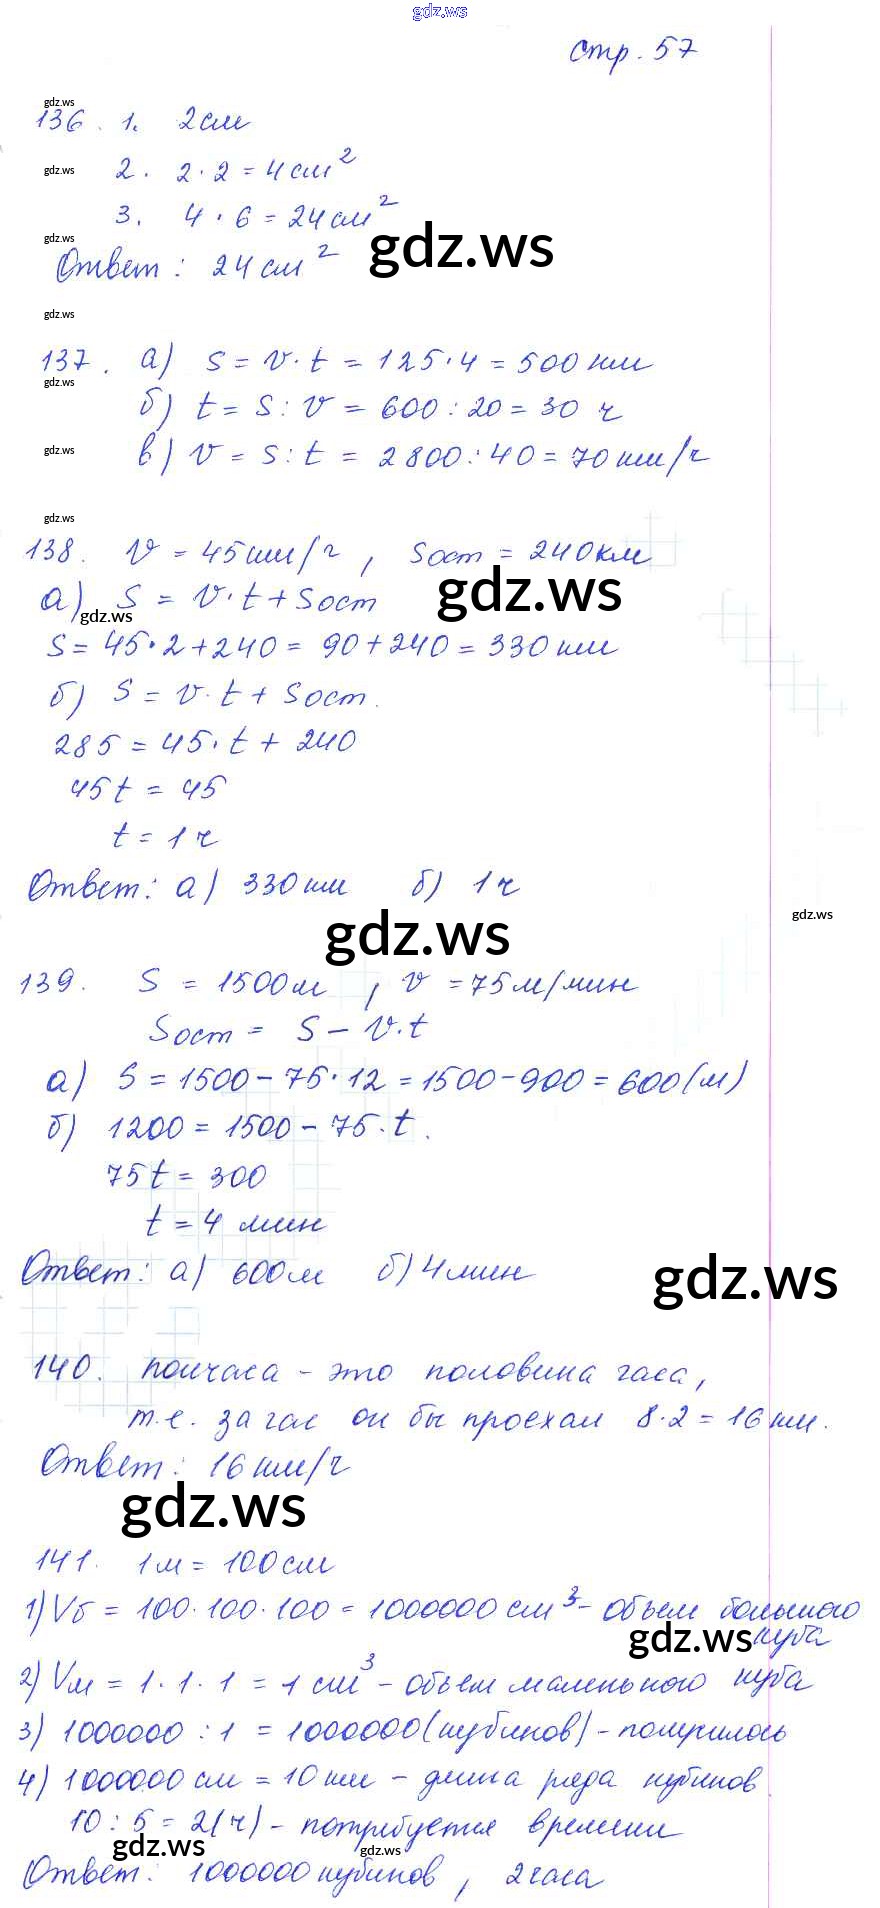 gdz.ws
стр. 57
gdz.ws
136. 1. 2см
gdz.ws 2. 2·2=4см²
3. 4·6=24см²
gdz.ws
Ответ: 24см² gdz.ws
gdz.ws
137. а) S=v·t=125·4=500км
gdz.ws
б) t=S:v=600:20=30 ч
gdz.ws в) v=S:t=2800:40=70км/ч
gdz.ws
138. v=45км/ч, Sост=240км
а) S=v·t+Sост gdz.ws
gdz.ws
S=45·2+240=90+240=330км
б) S=v·t+Sост.
285=45·t+240
45t=45
t=1ч
Ответ: а) 330км б) 1ч
gdz.ws
gdz.ws
139. S=1500м, v=75м/мин
Sост=S-v·t
а) S=1500-75·12=1500-900=600(м)
б) 1200=1500-75·t.
75t=300
t=4 мин
Ответ: а) 600м б) 4мин
gdz.ws
140. полчаса - это половина часа,
т.е. за час он бы проехал 8·2=16км.
Ответ: 16км/ч
gdz.ws
141. 1м=100см
1) Vб=100·100·100=1000000см³- объем большого
gdz.ws куба
2) Vм=1·1·1=1см³- объем маленького куба
3) 1000000:1=1000000(кубиков)-получилось
4) 1000000см=10км - длина ряда кубиков
10:5=2(ч)- потребуется времени
gdz.ws gdz.ws
Ответ: 1000000кубиков, 2часа